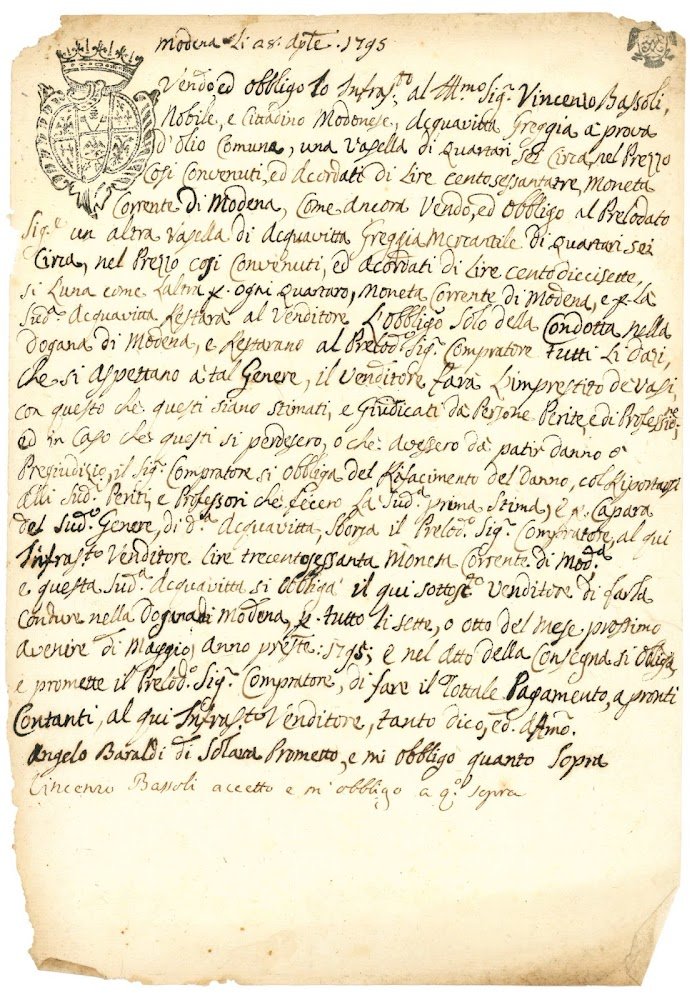 Modena Li 28. Aple. 1795
Vendo ed obbligo Io Infrastto. al Illmo. Sigr. Vincenzo Bassoli,
Nobile, e Cittadino Modonese, Acquavitta Greggia à prova
d'olio Comune, una Vasella di Quartari sei Circa, nel Prezzo
Così Convenuti, ed Acordati di Lire Centosessantatre, Moneta
Corrente di Modena, Come Ancora Vendo, ed obbligo al Prelodato
Sigr. un altra Vasella di Acquavitta Greggia Mercantile di Quartari sei
Circa, nel Prezzo così Convenuti, ed acordati di Lire Centodiccisette,
si L'una come L'altra p. ogni Quartaro, Moneta Corrente di Modena, e p. La
Suda. Acquavitta Restarà al Venditore L'obbligo Solo della Condotta nella
Dogana di Modena, e Restarano al Prelodo. Sigr. Compratore tutti Li Dazi,
che si Aspettano à tal Genere, il Venditore farà L'imprestito de Vasi,
con questo che questi siano stimati, e Giudicati dà Persone Perite, e di Professione,
ed in Caso che questi si perdesero, o che avessero dà patir danno ò
Pregiudizio, il Sigr. Compratore si obbliga del Rifacimento del Danno, col Riportarsi
alli Sudi. Periti, e Professori che fecero La Suda. prima Stima, e p. Capara
del Sudo. Genere, di da. Acquavitta, Sborsa il Prelodo. Sigr. Compratore, al qui
Infrastto Venditore Lire trecentosessanta Moneta Corrente di Moda.
e questa Suda. Acquavitta si obbliga il qui sottoscto. Venditore di farla
Condure nella Dogana di Modena, p. tutto li sette, o otto del Mese prossimo
avenire di Maggio, anno preste. 1795; e nel Atto della Consegna si obbliga,
e promette il Prelodo. Sigr. Compratore, di fare il Tottale Pagamento, a pronti
Contanti, al qui Infrastto Venditore, tanto dico, ed Affmo.
Angelo Baraldi di Solara Prometto, e mi obbligo quanto Sopra
Vincenzo Bassoli accetto e m'obbligo a qto. sopra